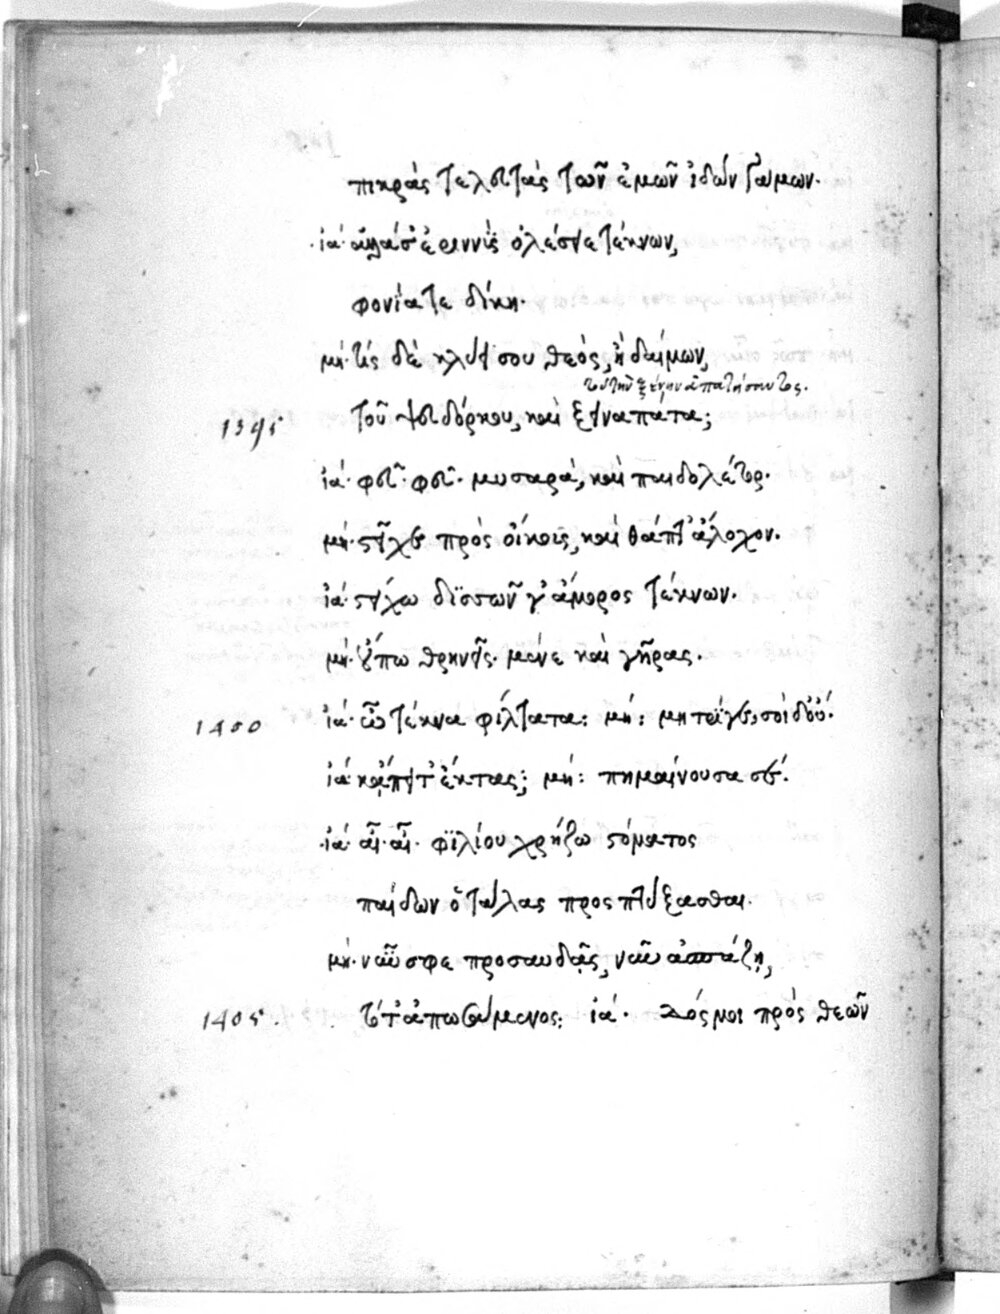 πικρὰς τελευτὰς τῶν ἐμῶν ἰδὼν γάμων.
ἰά· ἀλλά σ' ἐριννὺς ὀλέσειε τέκνων,
φονία τε δίκη.
μή· τίς δὲ κλύει σου θεὸς, ἢ δαίμων,
τοῦ τὴν ξένην ἀπατήσαντος.
1395 τοῦ ψευδόρκου, καὶ ξειναπάτα;
ἰά· φεῦ· φεῦ· μυσαρὰ, καὶ παιδολέτορ.
μή· στεῖχε πρὸς οἴκους, καὶ θάπτ' ἄλοχον.
ἰά· στείχω δισσῶν γ' ἄμορος τέκνων.
μή· οὔπω θρηνεῖς· μένε καὶ γῆρας.
1400 ἰά· ὦ τέκνα φίλτατα: μή: μητρί γε, σοὶ δ' οὔ.
ἰά κἄπειτ' ἔκτας; μή: πημαίνουσα σέ.
ἰά· αἶ· αἶ· φιλίου χρήζω στόματος
παίδων ὁ τάλας προσπτύξασθαι.
μή· νῦν σφε προσαυδᾷς, νῦν ἀσπάζῃ,
1405. τότ' ἀπωσάμενος: ἰά· δός μοι πρὸς θεῶν